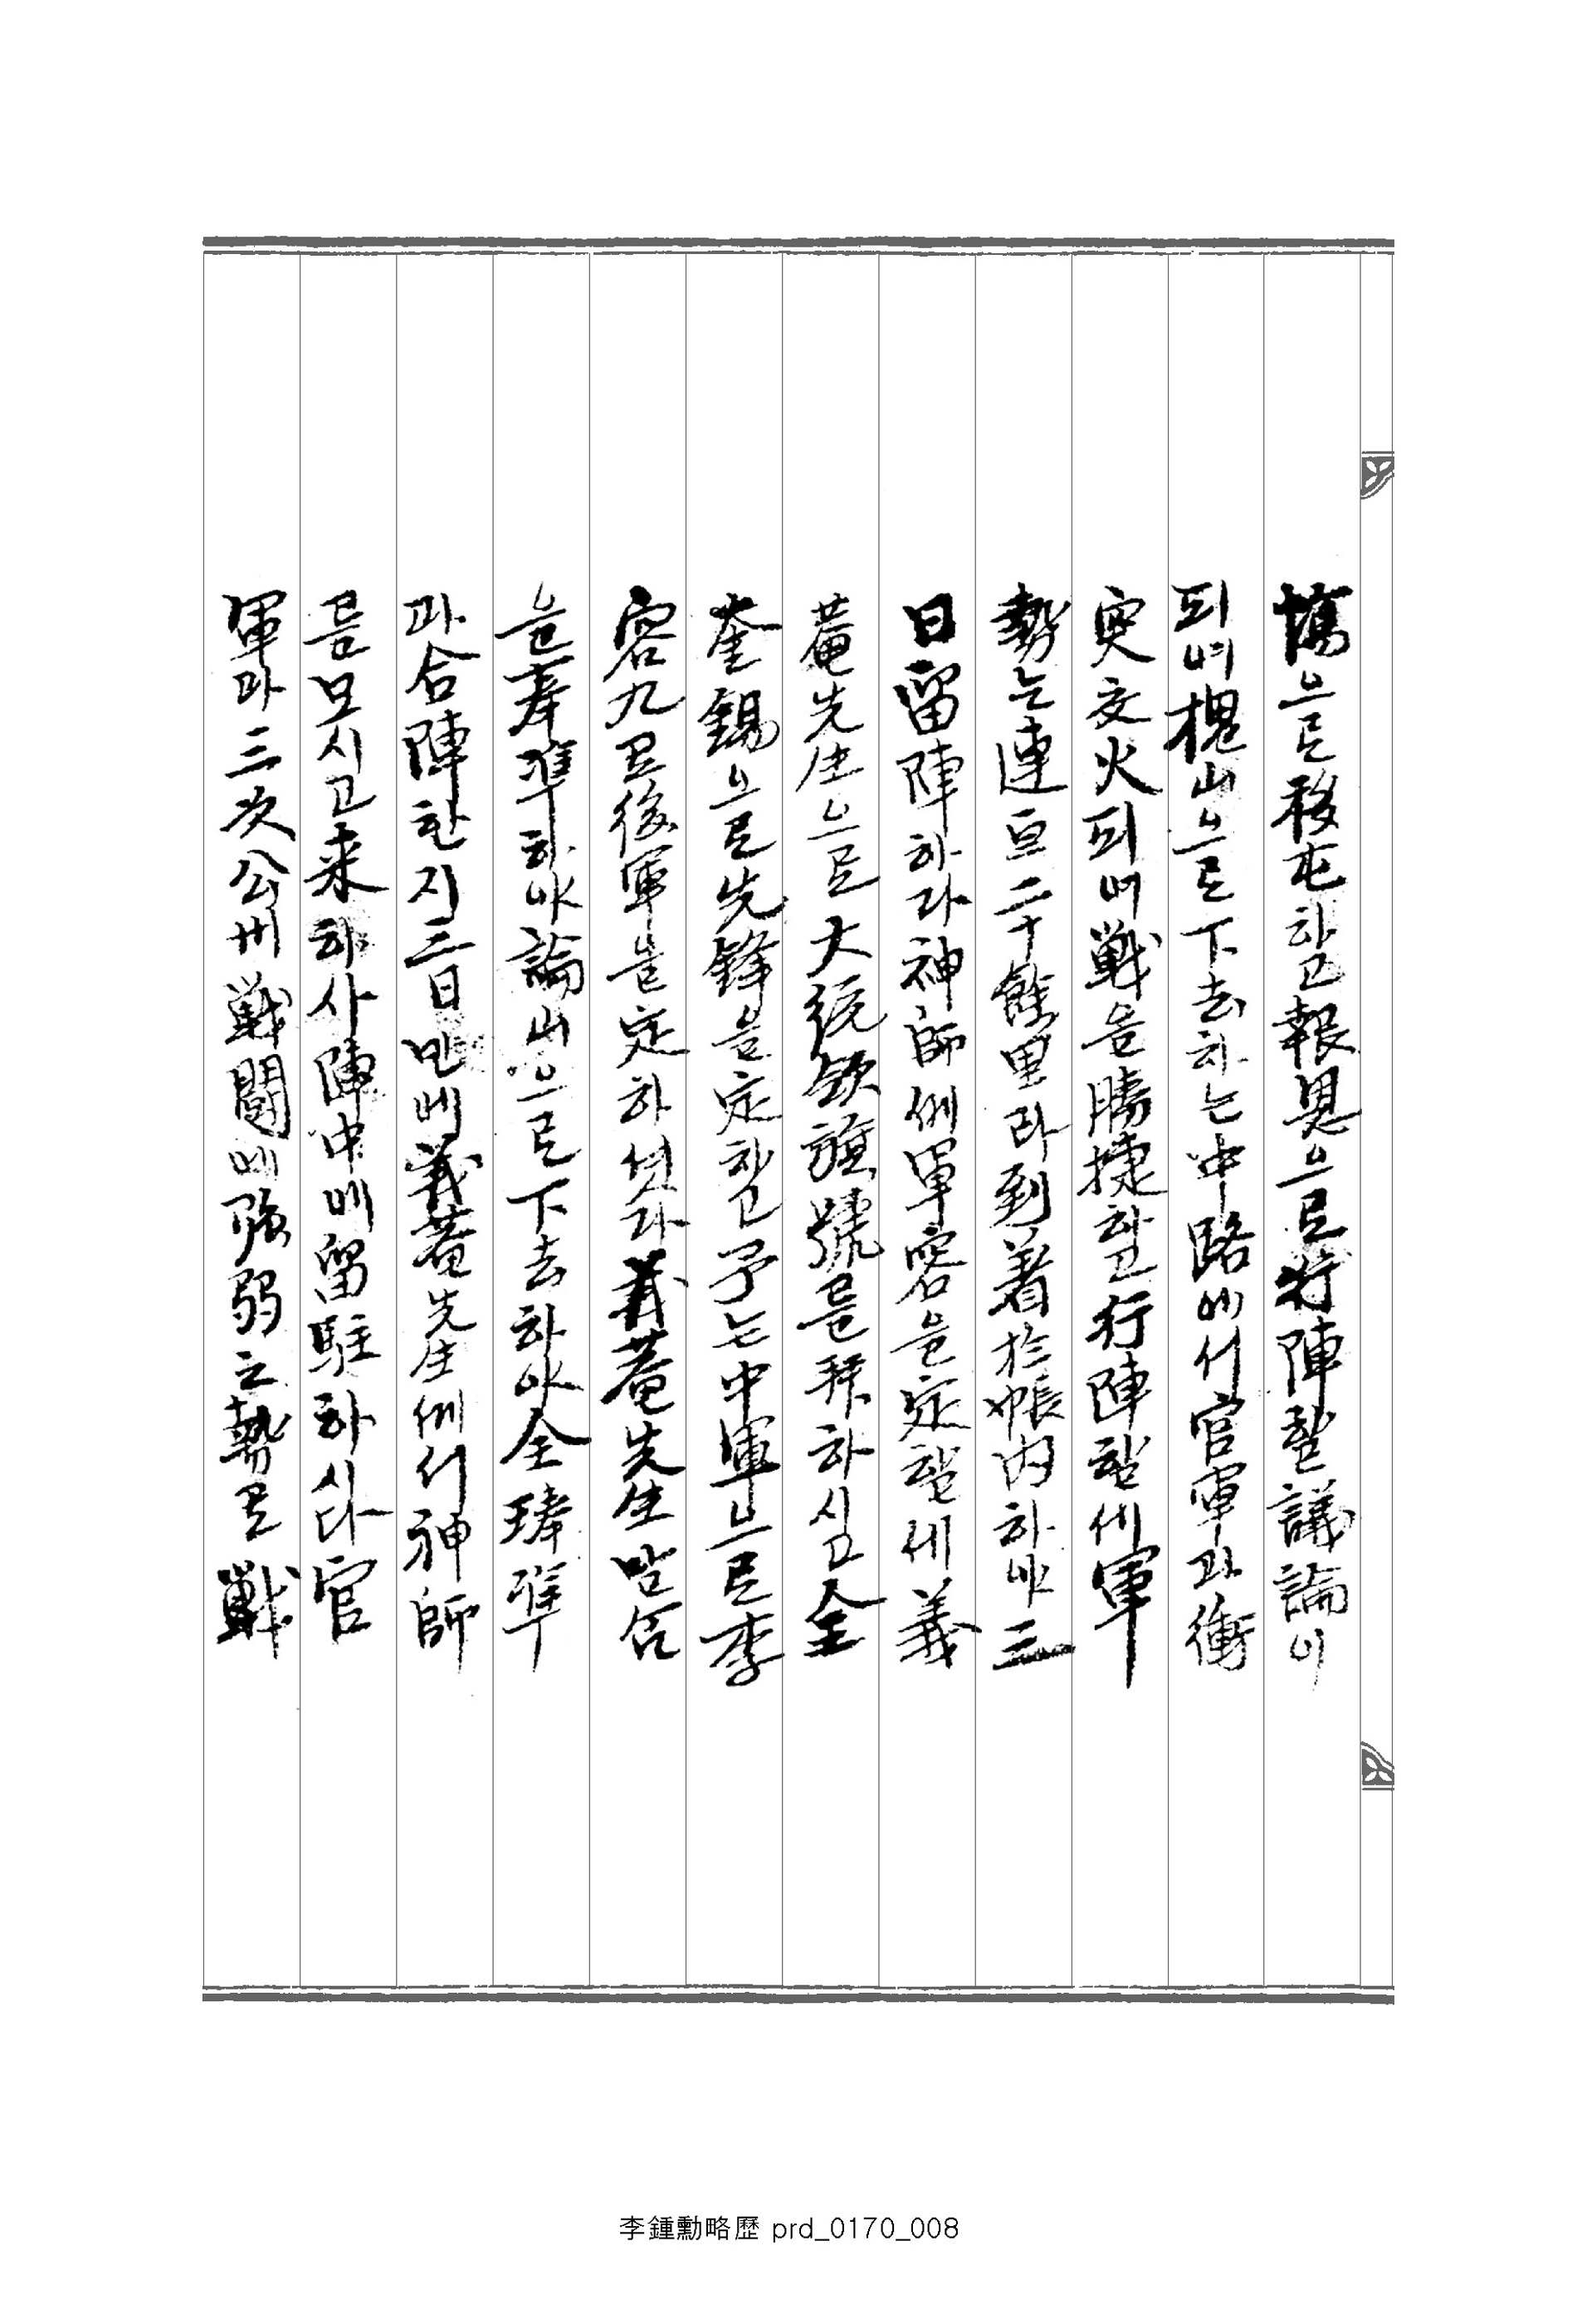 으로移屯하고報恩으로行陣할議論이
되며槐山으로下去하는中路에서官軍과衝
突交火되며戰을勝捷하고行陣할세軍
勢는連亘二十餘里라到着於帳內하야三
日留陣하다神師게軍容을定할세義
菴先生으로大統領旗號를拜하시고全
奎錫으로先鋒을定하고予는中軍으로李
容九로後軍을定하셧다義菴先生
을奉準하야論山으로下去하야全琫準
과合陣한지三日만에義菴先生게서神師
를모시고來하사陣中에留駐하시다官
軍과三次公州戰鬪에强弱之勢로戰
李鍾勳略歷 prd_0170_008